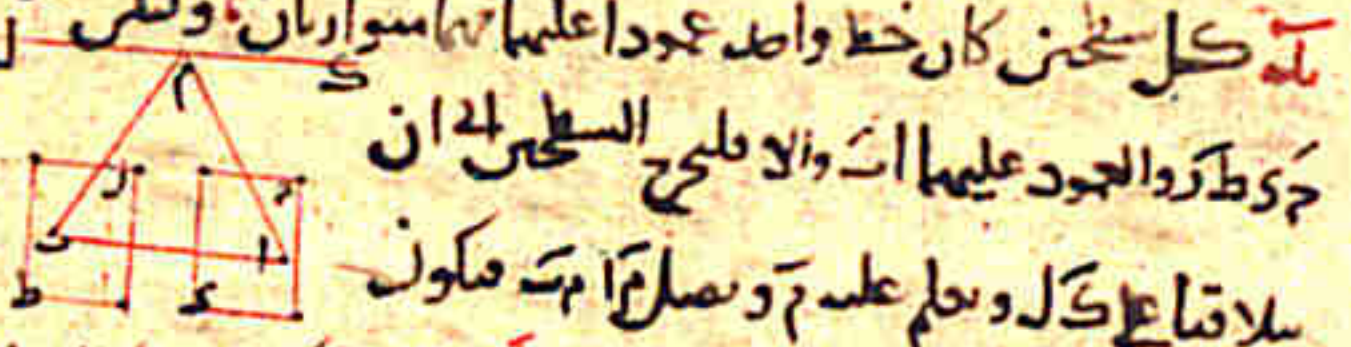 كل سطحين كان خط واحد عمودا عليهما فهما متوازيان وليكن
حـ ى ط ر والعمود عليهما اب والا فليخرج السطحين الى ان
يتلاقيا على ك ل ونعلم عليه م ونصل م ا م ب فيكون
ل
ك
م
ر
ح
ب
ا
ط
ى